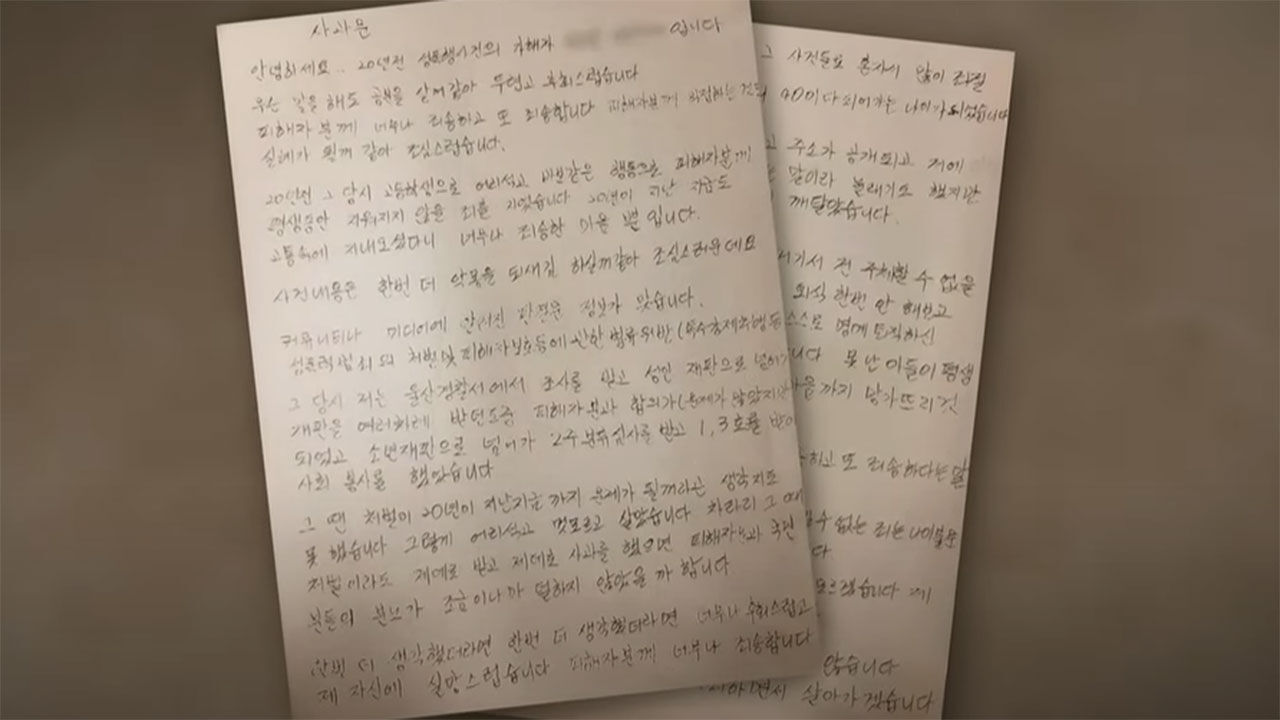 사과문
안녕하세요.. 20년전 성폭행사건의 가해자 입니다
무슨 말을 해도 공분을 살꺼같아 두렵고 후회스럽습니다
피해자분께 너무나 죄송하고 또 죄송합니다 피해자분께 직접하는 것도
실례가 될꺼 같아 조심스럽습니다.
20년전 그 당시 고등학생으로 어리석고 행동으로 피해자분께
평생동안 지워지지 않을 죄를 지었습니다 20년이 지난 지금도
고통속에 지내오셨다니 너무나 죄송한 마음 뿐 입니다.
사건내용은 한번 더 악몽을 되새김 하실까같아 조심스러운데요
커뮤니티나 미디어에 알려진 판결문 정보가 맞습니다.
성폭력범죄의 처벌및피해자보호등에 관한 법률위반(특수강제추행등
그 당시 저는 울산경찰서에서 조사를 받고 성인 재판으로 넘어가
재판을 여러차례 받던도중 피해자분과 합의가
되었고 소년재판으로 넘어가 2주 분류심사를 받고 1,3호를 받아
사회 봉사를 했었습니다
그 땐 처벌이 20년이 지난지금 까지 문제가 될꺼라는 생각지도
못 했습니다 그렇게 어리석고 멋모르고 살았습니다 차라리 그 때
처벌이라도 제대로 받고 제대로 사과를 했으면 피해자분과 국민
분들의 분노가 조금이나마 덜하지 않았을 까 합니다
한번 더 생각했더라면 한번 더 생각했더라면 너무나 후회스럽고
제 자신에 실망스럽습니다 피해자분께 너무나 죄송합니다
그 사건들로 혼자서 많이
40이 다 되어가는 나이가 되었습니다
주소가 공개되고 저에
말이라 놀래기도 했지만
깨달았습니다.
전 주체할 수 없을
회식 한번 안 해보고
스스로 명예 퇴직하신
못난 아들이 평생
까지 망가뜨리 것
또 죄송하다는 말
수 없는 죄는 나이불문
다.
모르겠습니다 제
않습니다
살아가겠습니다